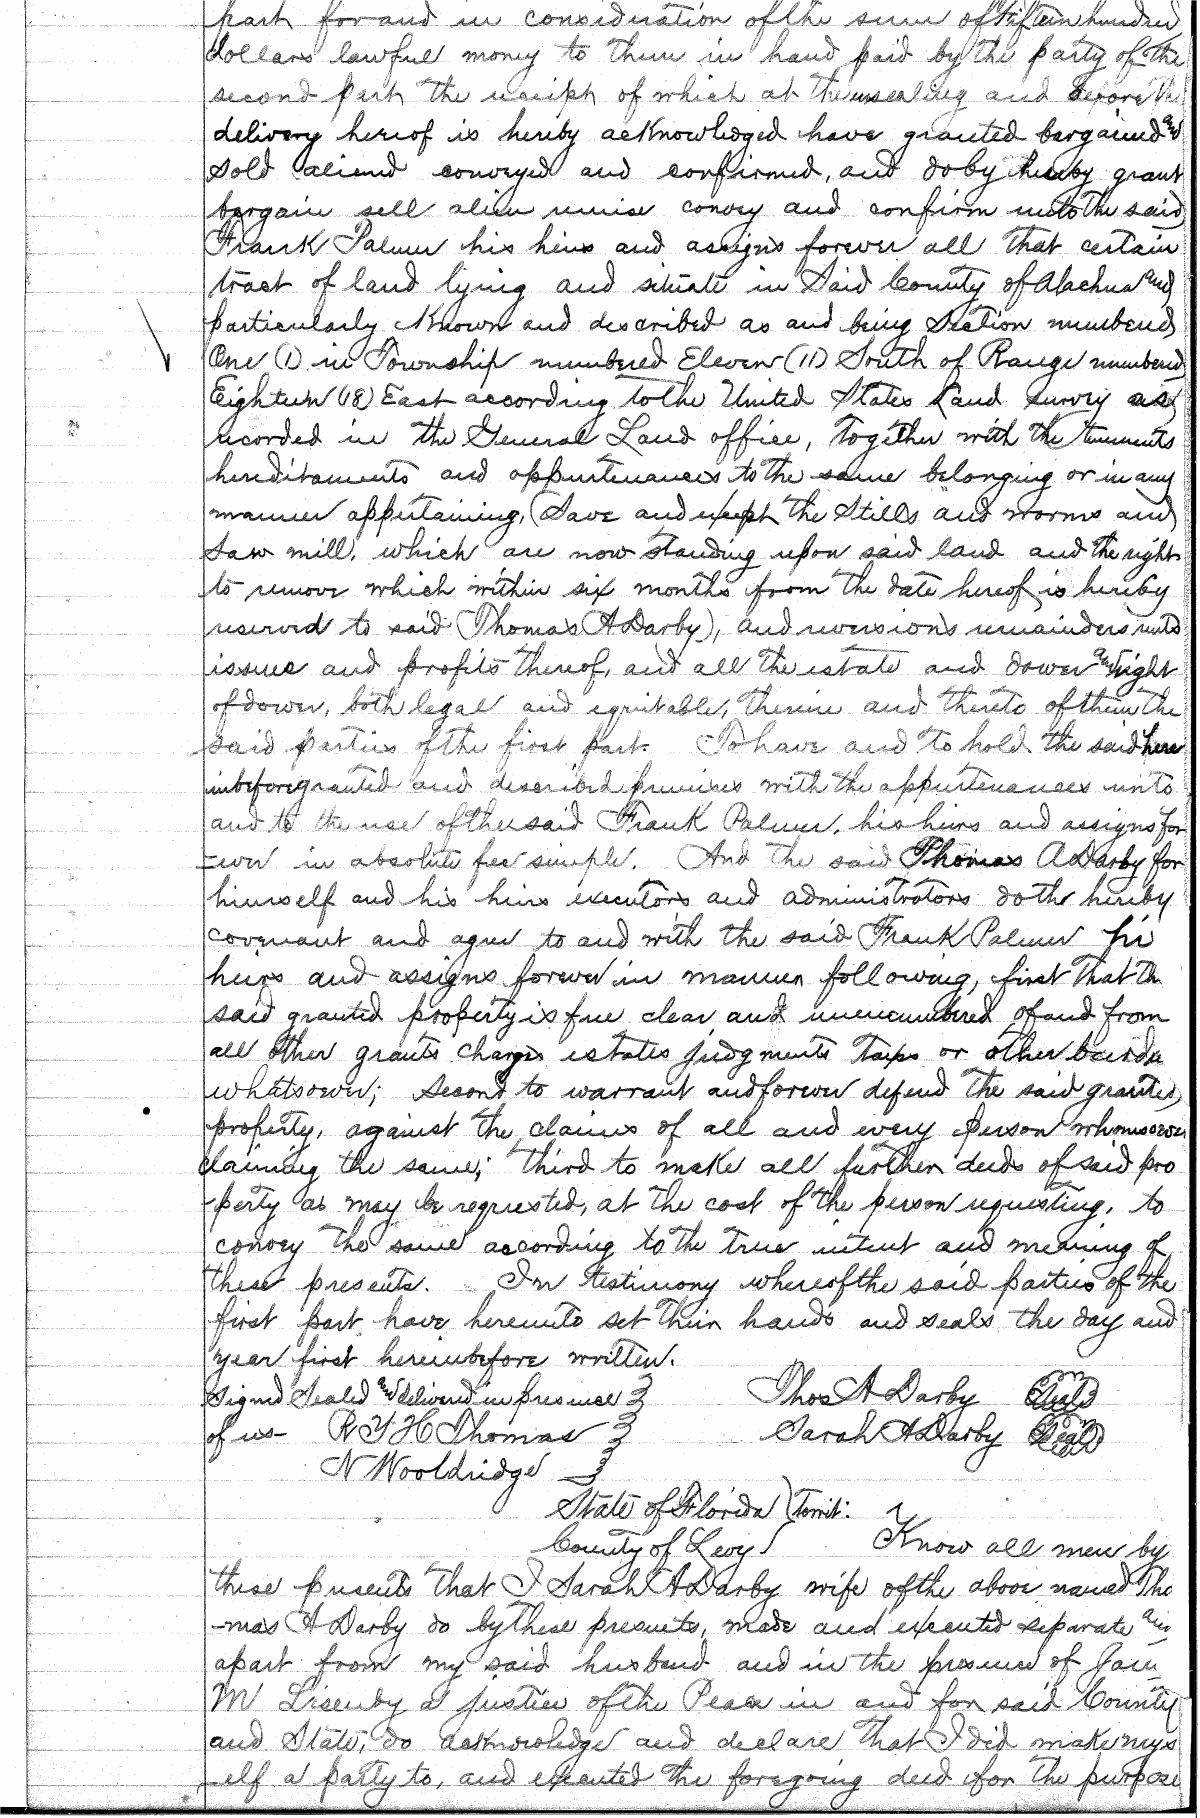 part for and in consideration of the sum of Fifteen hundred
dollars lawful money to them in hand paid by the party of the
second part the receipt of which at the ensealing and before the
delivery hereof is hereby acknowledged have granted bargained and
sold aliened conveyed and confirmed, and do by hereby grant
bargain sell alien remise convey and confirm unto the said
Frank Palmer his heirs and assigns forever all that certain
tract of land lying and situate in Said County of Alachua and
particularly Known and described as and being Section numbered
One (1) in Township numbered Eleven (11) South of Range numbered
Eighteen (18) East according to the United States Land Survey as
recorded in the General Land office, together with the tenements
hereditaments and appurtenances to the same belonging or in any
manner appertaining, (Save and except the Stills and worms and
Saw mill, which are now standing upon said land and the right
to remove which within six months from the date hereof is hereby
reserved to said Thomas A Darby), and reversions remainders rents
issues and profits thereof, and all the estate and dower and right
of dower, both legal and equitable, therein and thereto of them the
said parties of the first part. To have and to hold the said here
inbefore granted and described premises with the appurtenances unto
and to the use of the said Frank Palmer, his heirs and assigns for
-ever in absolute fee simple. And the said Thomas A Darby for
himself and his heirs executors and administrators doth hereby
covenant and agree to and with the said Frank Palmer his
heirs and assigns forever in manner following, first that the
said granted property is free clear and unencumbered of and from
all other grants charges estates judgments taxes or other
whatsoever; second to warrant and forever defend the said granted
property, against the claims of all and every person whomsoever
claiming the same; third to make all further deeds of said pro
-perty as may be requested, at the cost of the person requesting, to
convey the same according to the true intent and meaning of
these presents. In testimony whereof the said parties of the
first part have hereunto set their hands and seals the day and
year first hereinbefore written.
Signed Sealed and delivered in presence Thos A Darby (Seal)
of us- R Y H Thomas Sarah A Darby (Seal)
N Wooldridge
State of Florida ) Towit:
County of Levy ) Know all men by
these presents that I Sarah A Darby wife of the above named Tho
-mas A Darby do by these presents, made and executed separate and
apart from my said husband and in the presence of
M Lisenby a Justice of the Peace in and for said County
and State, do acknowledge and declare that I did make mys
-elf a party to, and executed the foregoing deed for the purpose